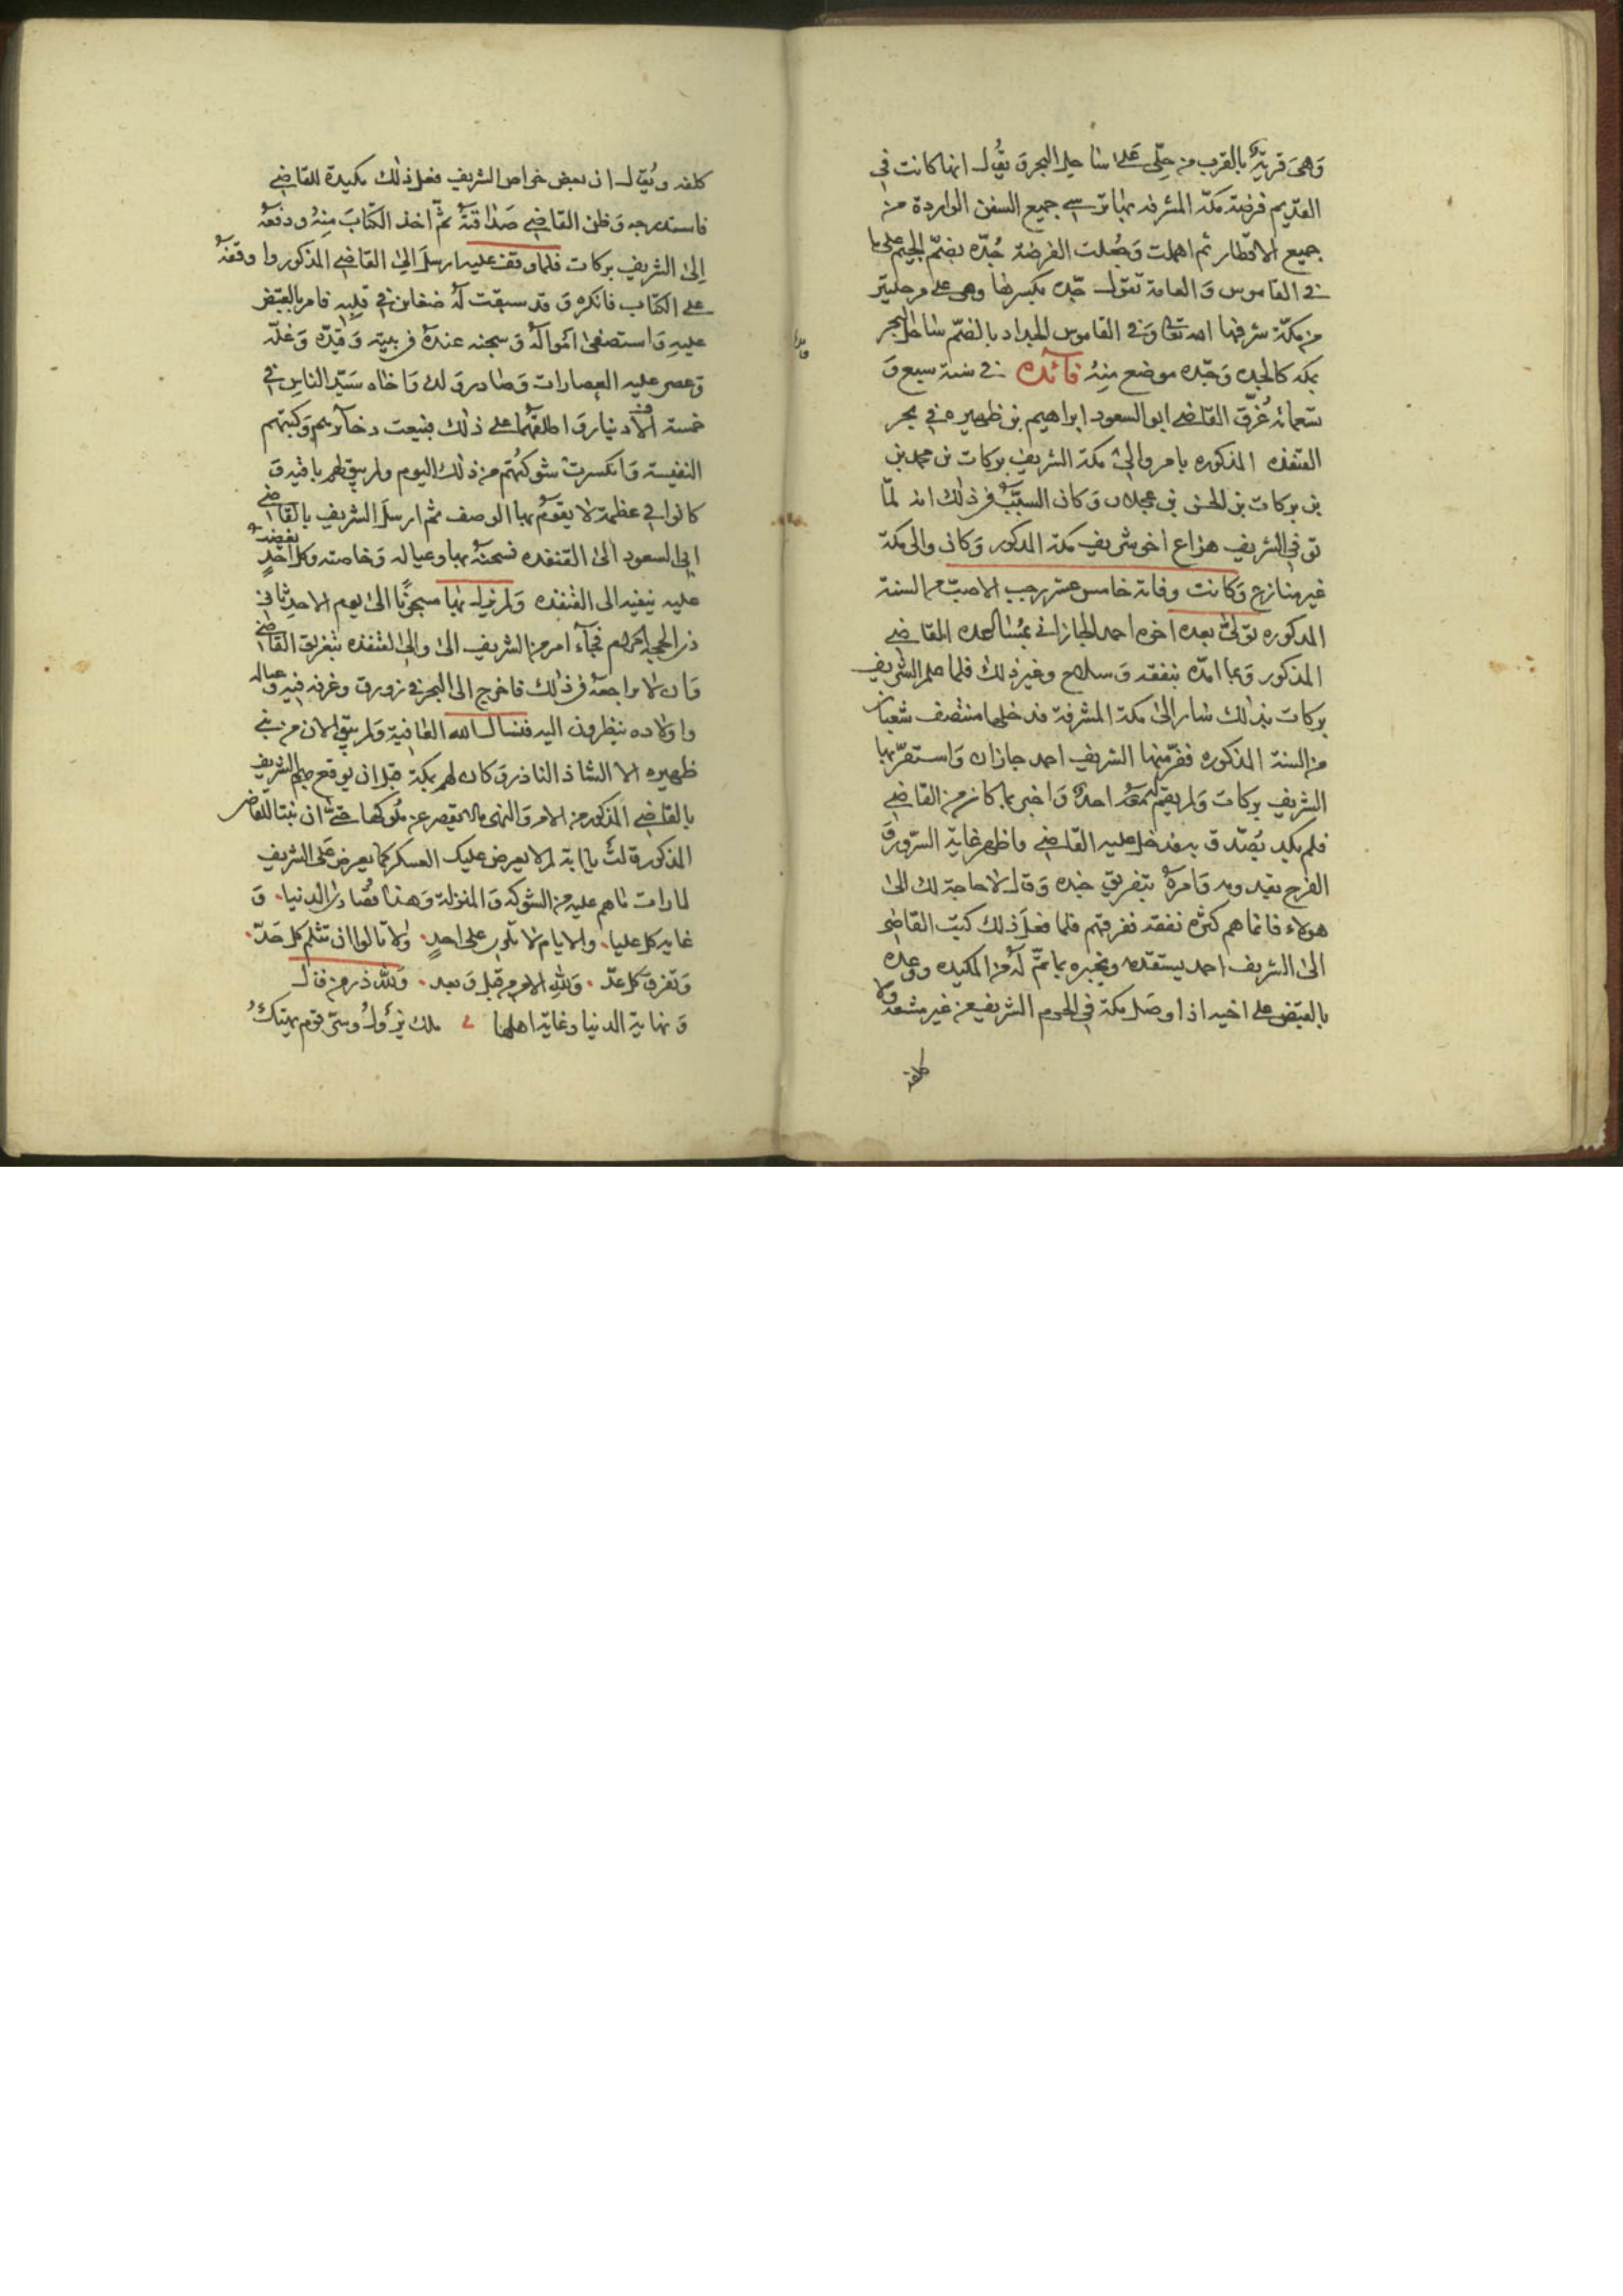 وَهىَ قريةٌ بالقرب من حِلّي عَلى ساحل البحر وَ يقُال انها كانت في
القديم فرضة مكّة المشرفه بها ترسي جميع السفن الواردة من
جميع الاقطار ثم اهملت وَجُعلت الفرضة جُدّه بضمّ الجيم على ما
في القاموس وَ العامة تقول جّده بكسرها وهى على مرحلتين
من مكّة شرفها الله تعالى وَفي القاموس الجداد بالضمّ ساحل البحر
بمكه كالجده وَجّده موضع مِنهُ فائده في سنة سبع وَ
تسعمائه غُرّق القاضي ابو السعود ابراهيم بن ظهيره في بحر
القنفذه المذكوره بامر والى مكة الشريف بركات بن محمد بن
بن بركات بن الحسن بن عجلان وَ كان السبَبُ في ذلك انه لمّا
توفي الشريف هزاع اخو شريف مكة المذكور وَكان والى مكة
غير منازع وَكانت وفاته خامس عشر رجب الاصب من السنة
المذكوره تولىّ بعده اخوه احمد الجازاني بمُساعدة القاضي
المذكور وَ بما امدّه بنفقه وَ سلاح وغير ذلك فلما علم الشريف
بركات بذلك سار الى مكة المشرفة فدخلها منتصف شعبان
من السنة المذكوره ففرّ منها الشريف احمد جازان وَاستقرّ بها
الشريف بركات وَلم يقم معهُ احدٌ وَاخبر بما كان من القاضي
فلم يكد يُصّدق به فدخل عليه القاضي فاظهر غاية السّرور وَ
الفرح بقدومه وَامرهُ بتفريق جنده وَقال لا حاجة لك الى
هولاء فانما هم كثرة نفقه ففرقهم فلما فعلَ ذلك كتب القاضي
الى الشريف احمد يستقدمه ويخبره بما تمّ لهُ من المكيده ووعده
بالقبض على اخيه اذا وصَل مكة في الحرم الشريف من غير مشقة ولا
كلفه
كلفه ويُقال ان بعض خواص الشريف فعل ذلك مكيدة للقاضي
فاستدرجه وَظن القاضي صَداقتهُ ثمّ اخذ الكتابَ مِنهُ ودفعهُ
اِلى الشريف بركات فلما وقف عليه ارسلَ الى القاضي المذكور واوقفهُ
على الكتاب فانكره وَ قد سبقت لهُ ضغاين في قلبه فامر بالقبض
عليهِ وَاستصفىٰ اموالهُ وَ سجنه عندهُ في بيته وَقيّده وَغلّه
وَعصر عليه العصارات وَصادر وَلده وَاخاه سَيّد الناس في
خمسة الاف دنيار وَ اطلقهُما على ذلك فبيعت دخائرهم وَكتبهم
النفيسة وَانكسرتْ شوكتُهم من ذلك اليوم ولم يبق لهم باقيه وَ
كانوا في عظمة لا يقومُ بها الوصف ثم ارسلَ الشريف بالقاضي
ابي السعود الى القنفده فسجنهُ بها وعياله وَخاصته وكل احدٍ يغضب
عليه ينفيه الى القنفده وَلم يزل بها مسجوناً الى يوم الاحد ثاني
ذى الحجه الحرام فجآء امر من الشريف الى والى القنفده بتغريق القاضي
وَان لا مراجعهُ في ذلك فاخرج الى البحر في زورق وغرفه فيه وعياله
واولاده ينظرون اليه فنسال الله العافية وَلم يبق الان من بني
ظهيره الا الشاذ النادر وَ كان لهم بمكة قبل ان يوقع بهم الشريف
بالقاضي المذكور من الامر وَ النهى مالم يقصر عن ملوكها حتىّ ان بنتا للقاضي
المذكور قالتْ يا ابة لم لا يعرض عليك العسكر كما يعرض على الشريف
لما رات ما هم عليه من الشوكه وَ المنزلة وَهذا قُصارى الدنيا. وَ
غايه كل عليا. والايام لا تلوى على احدٍ. ولا تالوا ان تثلم كل حَدّ.
وَتفرق كل عدّ. وَلله الامر من قبل وَ بعد. وَلله در من قال
وَ نهاية الدنيا وغاية اهلها ملك يزُولُ وستر قوم يهتكُ